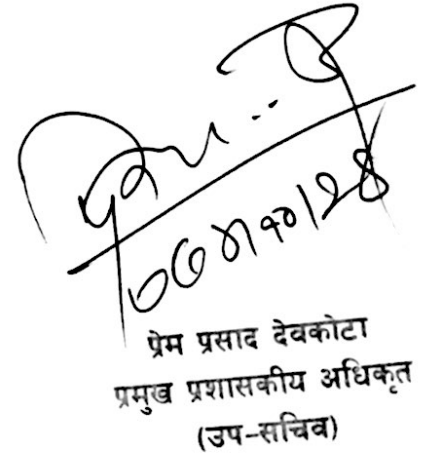 प्रेम प्रसाद देवकोटा
प्रमुख प्रशासकीय अधिकृत
(उप-सचिव)